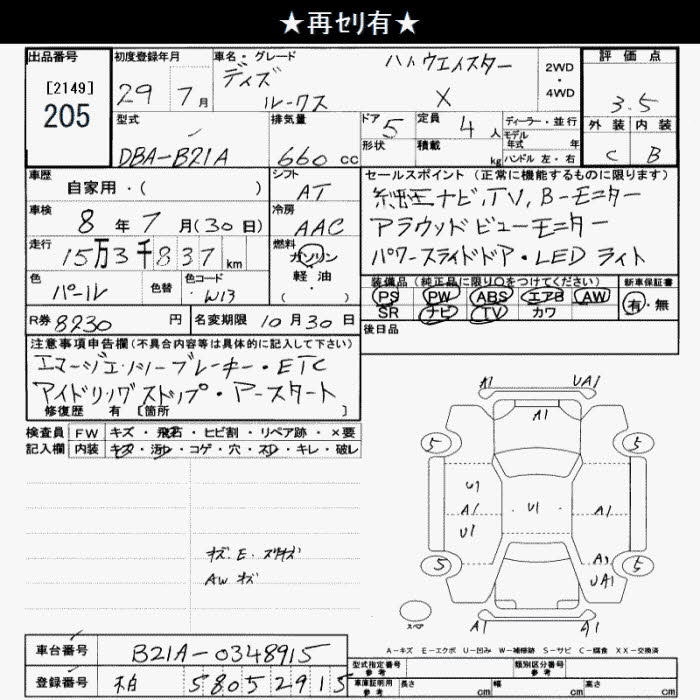 ★再セリ有★
出品番号
[2149]
205
初度登録年月
29 7月
車名・グレード
デイズ ハイウエイスター
ルークス X
2WD
・
4WD
評価点
3.5
外装 内装
C B
型式
DBA-B21A
排気量
660 cc
ドア 5
形状
定員 4人
積載 kg
ディーラー・並行
モデル
年式 年
ハンドル 左・右
車歴
自家用・( )
シフト
AT
セールスポイント (正常に機能するものに限ります)
純正ナビ、TV、B-モニター
アラウンドビューモニター
パワースライドドア・LEDライト
車検
8年7月(30日)
冷房
AAC
走行
15万3千837 km
燃料
ガソリン
軽油
・( )
色
パール
色替
色コード
・W13
装備品 (純正品に限り○をつけてください)
PS PW ABS エアB AW
SR ナビ TV カワ
新車保証書
有・無
R券 8230円
名変期限 10月30日
後日品
注意事項申告欄(不具合内容等は具体的に記入して下さい)
エマージェンシーブレーキ・ETC
アイドリングストップ・プッシュスタート
修復歴 有 [箇所 ]
検査員
記入欄
FW キズ・飛石・ヒビ割・リペア跡・×要
内装 キズ・汚れ・コゲ・穴・スレ・キレ・破レ
キズ、E、スリキズ
AW キズ
A1 UA1
A1
5 5
U1
A1 U1 A1
U1
A2
UA1
5 5
スペア
A1 A1
A-キズ E-エクボ U-凹み W-補修跡 S-サビ C-腐食 XX-交換済
車台番号
B21A-0348915
登録番号
柏 580 5 2915
型式指定番号
参考
類別区分番号
参考
車庫証明用
参考
長さ cm
幅 cm
高さ cm